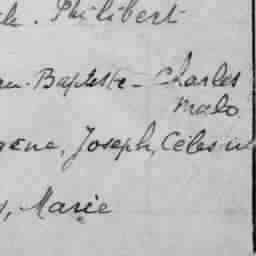 Philibert
Baptiste - Charles
Malo
gène, Joseph, Célesti
, Marie